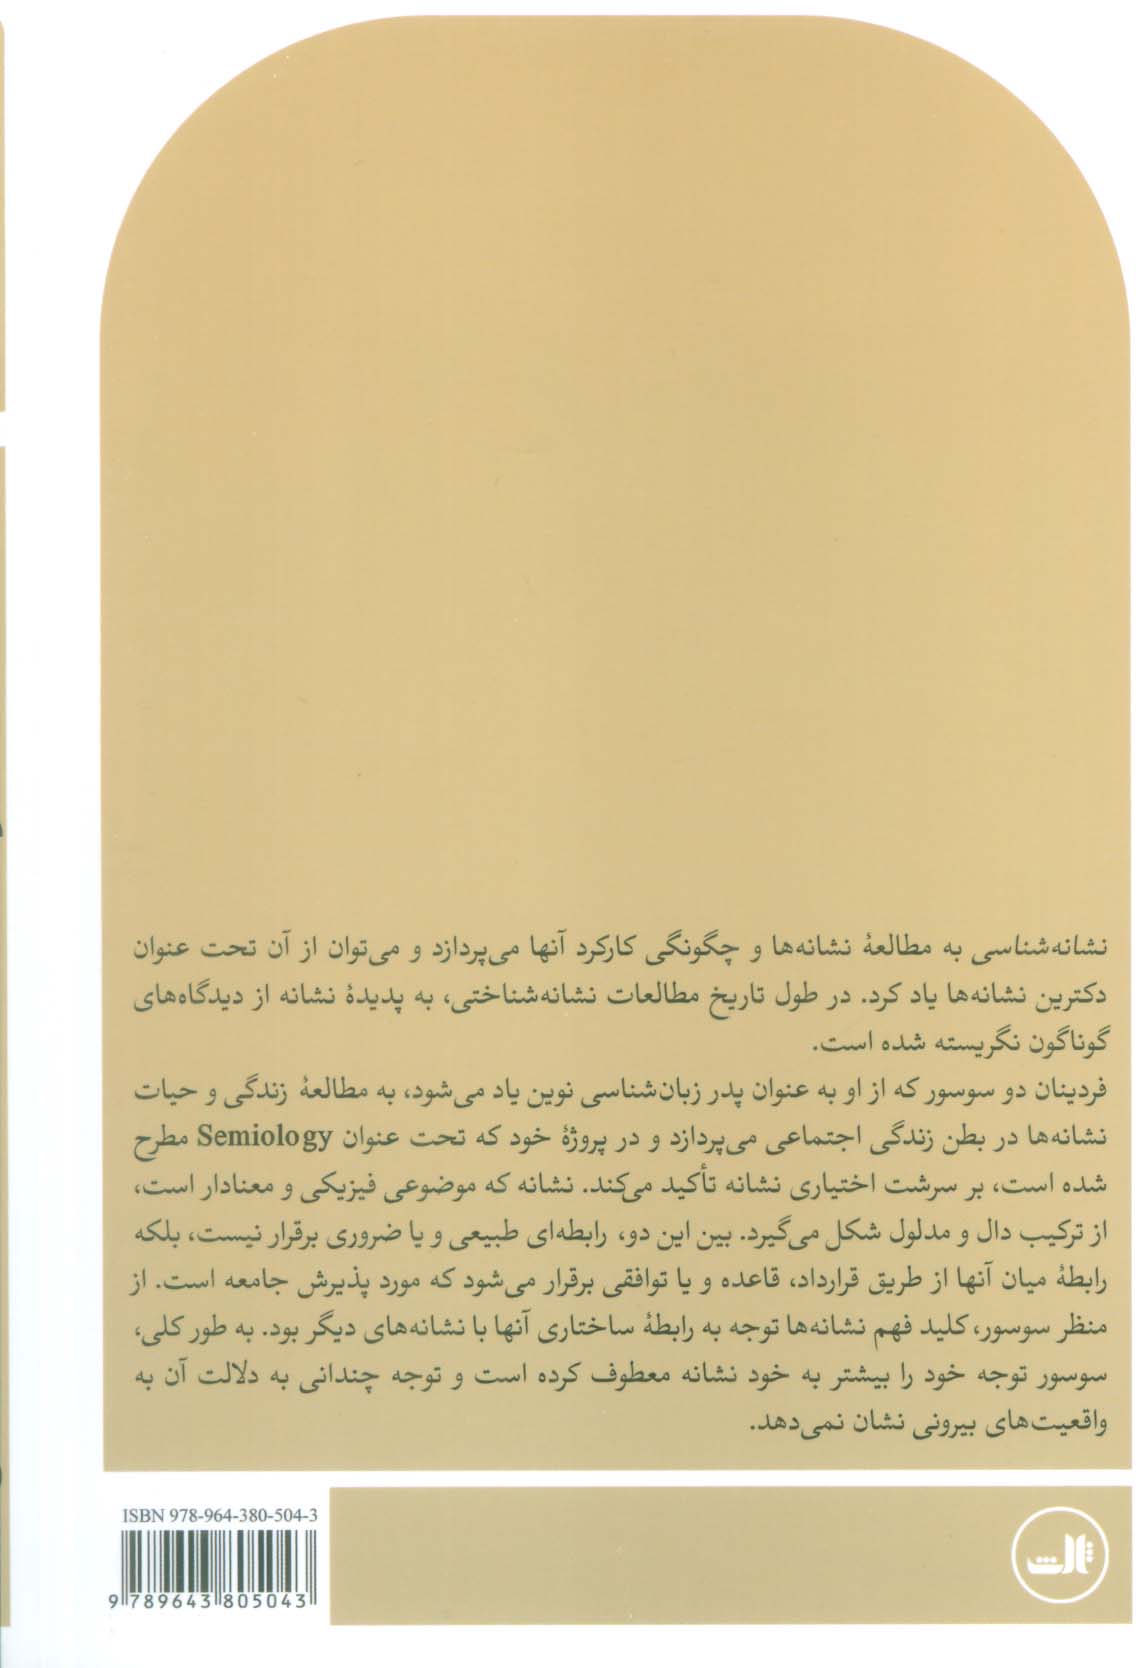 نشانه‌شناسی به مطالعهٔ نشانه‌ها و چگونگی کارکرد آنها می‌پردازد و می‌توان از آن تحت عنوان
دکترین نشانه‌ها یاد کرد. در طول تاریخ مطالعات نشانه‌شناختی، به پدیدهٔ نشانه از دیدگاه‌های
گوناگون نگریسته شده است.
فردینان دو سوسور که از او به عنوان پدر زبان‌شناسی نوین یاد می‌شود، به مطالعهٔ زندگی و حیات
نشانه‌ها در بطن زندگی اجتماعی می‌پردازد و در پروژهٔ خود که تحت عنوان Semiology مطرح
شده است، بر سرشت اختیاری نشانه تأکید می‌کند. نشانه که موضوعی فیزیکی و معنادار است،
از ترکیب دال و مدلول شکل می‌گیرد. بین این دو، رابطه‌ای طبیعی و یا ضروری برقرار نیست، بلکه
رابطهٔ میان آنها از طریق قرارداد، قاعده و یا توافقی برقرار می‌شود که مورد پذیرش جامعه است. از
منظر سوسور، کلید فهم نشانه‌ها توجه به رابطهٔ ساختاری آنها با نشانه‌های دیگر بود. به طور کلی،
سوسور توجه خود را بیشتر به خود نشانه معطوف کرده است و توجه چندانی به دلالت آن به
واقعیت‌های بیرونی نشان نمی‌دهد.
ISBN 978-964-380-504-3
9 789643 805043
ثالث